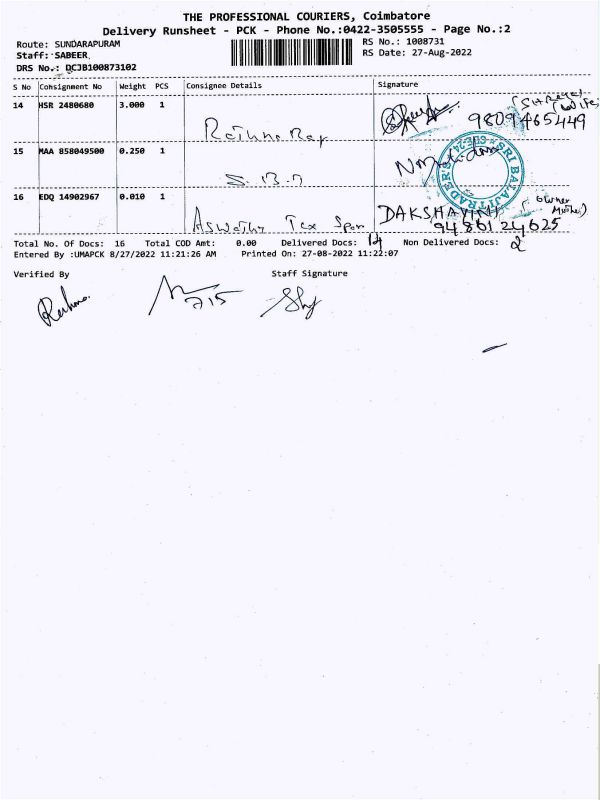 THE PROFESSIONAL COURIERS, Coimbatore
Delivery Runsheet - PCK - Phone No.:0422-3505555 - Page No.:2
Route: SUNDARAPURAM
RS No.: 1008731
Staff: SABEER
RS Date: 27-Aug-2022
DRS No.: DCJB100873102
S No Consignment No Weight PCS Consignee Details Signature
14 HSR 2480680 3.000 1
9809465449
15 MAA 858049500 0.250 1
SRI BALAJI TRADER'S
16 EDQ 14902967 0.010 1
DAKSHAYINI (Owner Mother)
9486124625
Total No. Of Docs: 16 Total COD Amt: 0.00 Delivered Docs: 14 Non Delivered Docs: 2
Entered By :UMAPCK 8/27/2022 11:21:26 AM Printed On: 27-08-2022 11:22:07
Verified By Staff Signature